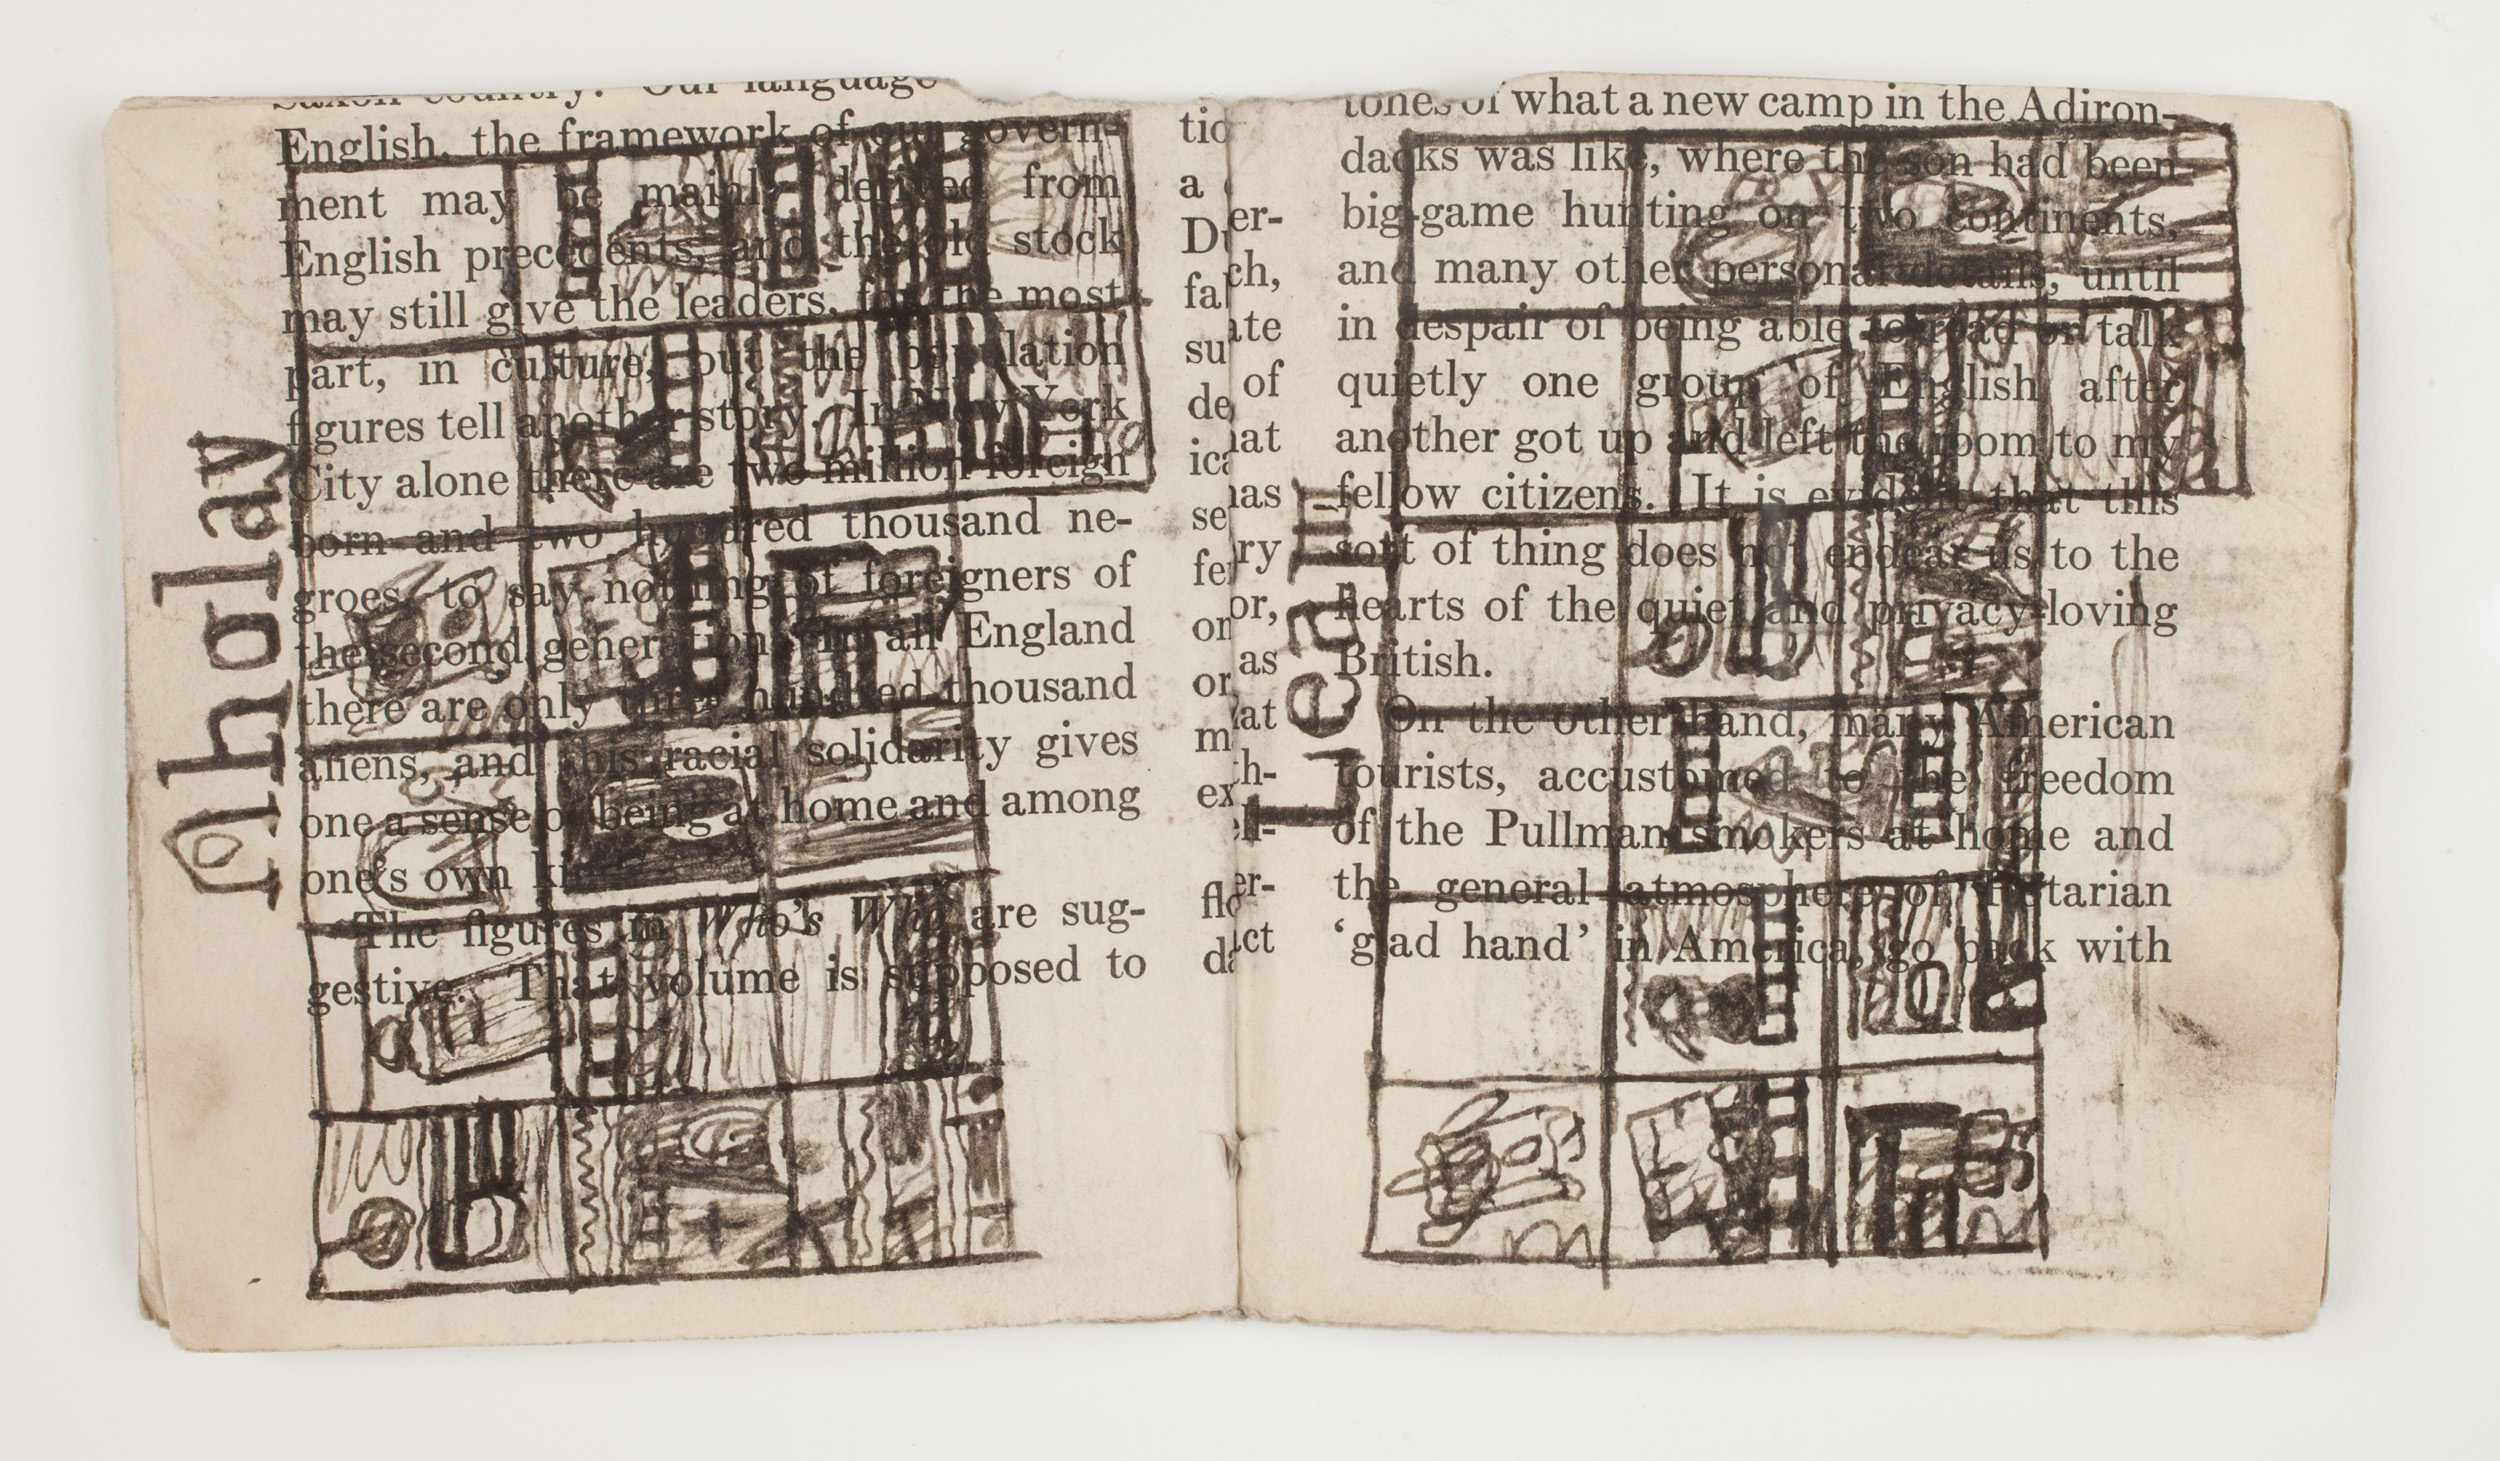 Saxon country. Our language
English, the framework of our govern-
ment may be mainly derived from
English precedents, and the old stock
may still give the leaders, for the most
part, in culture, but the population
figures tell another story. In New York
City alone there are two million foreign
born and two hundred thousand ne-
groes, to say nothing of foreigners of
the second generation. In all England
there are only three hundred thousand
aliens, and this racial solidarity gives
one a sense of being at home and among
one's own
The figures in Who's Who are sug-
gestive. That volume is supposed to
Aholay
tic
a
fa
su
de
ica
se
fe
or
or
m
ex
flo
da
er-
ch,
ate
of
hat
has
ry
or,
as
at
th-
ell-
er-
act
Lealn
tones of what a new camp in the Adiron-
dacks was like, where the son had been
big-game hunting on two continents,
and many other personal details, until
in despair of being able to read or talk
quietly one group of English after
another got up and left the room to my
fellow citizens. It is evident that this
sort of thing does not endear us to the
hearts of the quiet and privacy-loving
British.
On the other hand, many American
tourists, accustomed to the freedom
of the Pullman smokers at home and
the general atmosphere of Rotarian
'glad hand' in America, go back with